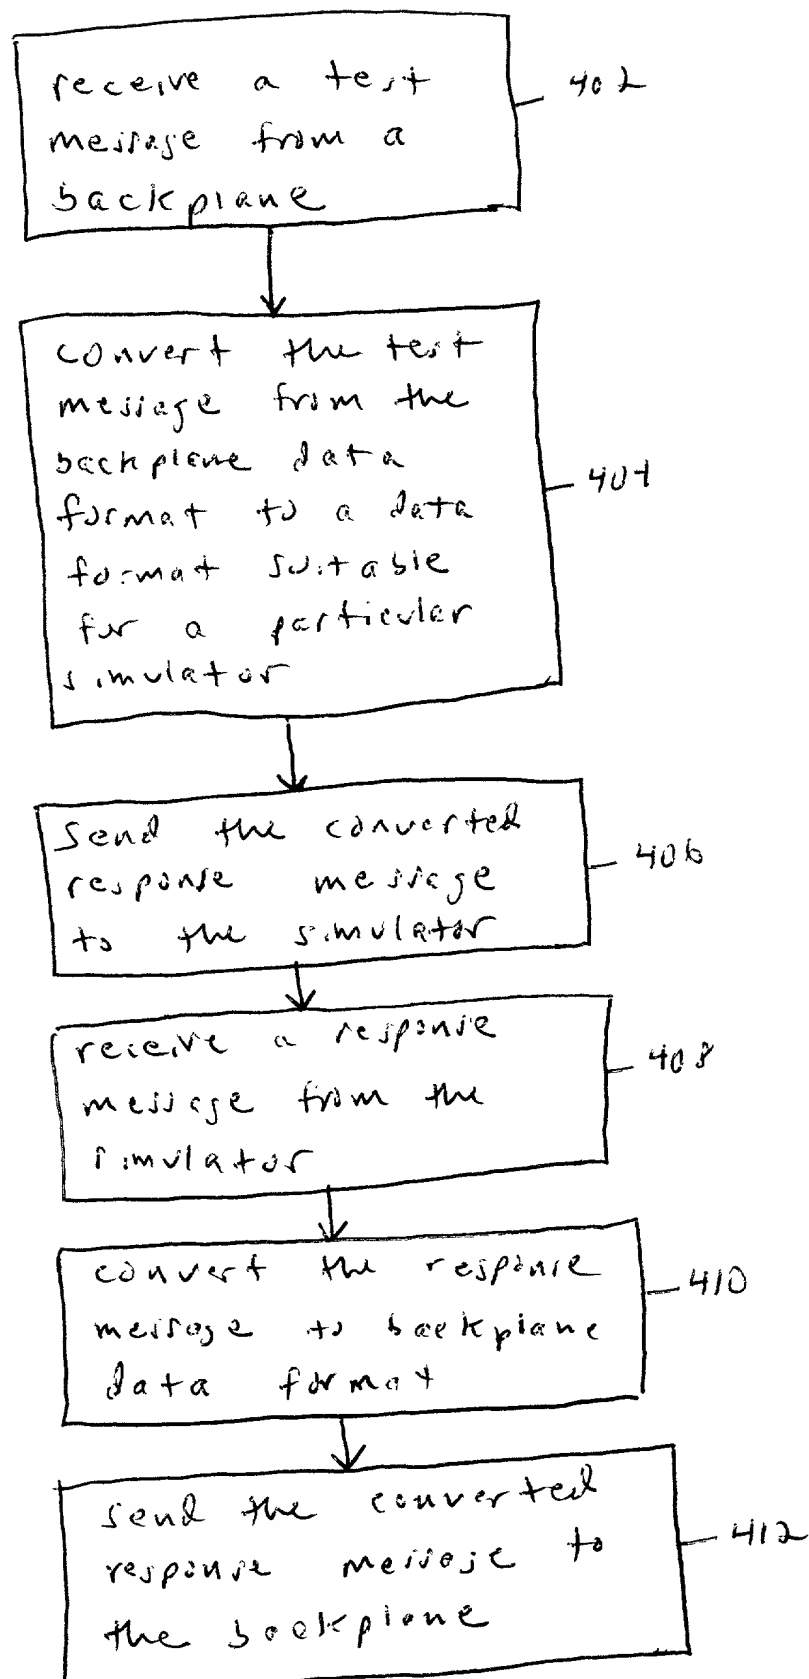 receive a test
message from a
backplane
402
convert the test
message from the
backplane data
format to a data
format suitable
for a particular
simulator
404
send the converted
response message
to the simulator
406
receive a response
message from the
simulator
408
convert the response
message to backplane
data format
410
send the converted
response message to
the backplane
412